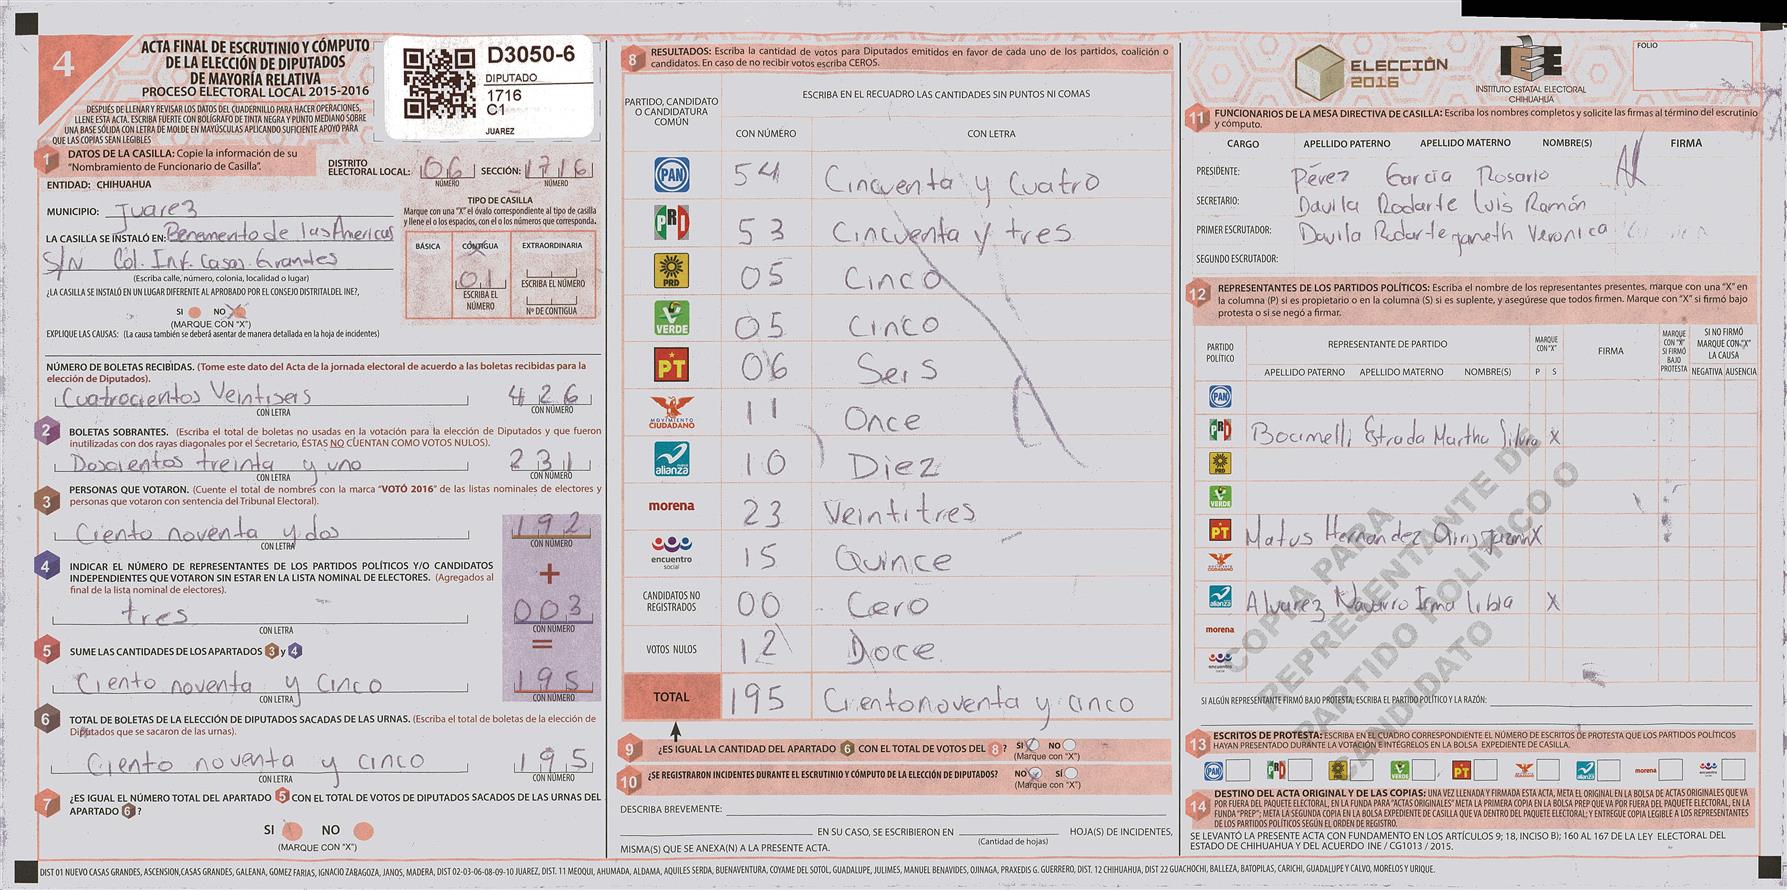 4
ACTA FINAL DE ESCRUTINIO Y CÓMPUTO
DE LA ELECCIÓN DE DIPUTADOS
DE MAYORÍA RELATIVA
PROCESO ELECTORAL LOCAL 2015-2016
DESPUÉS DE LLENAR Y REVISAR LOS DATOS DEL CUADERNILLO PARA HACER OPERACIONES,
LLENE ESTA ACTA. ESCRIBA FUERTE CON BOLÍGRAFO DE TINTA NEGRA Y PUNTO MEDIANO SOBRE
UNA BASE SÓLIDA CON LETRA DE MOLDE EN MAYÚSCULAS APLICANDO SUFICIENTE APOYO PARA
QUE LAS COPIAS SEAN LEGIBLES
D3050-6
DIPUTADO
1716
C1
JUAREZ
1 DATOS DE LA CASILLA: Copie la información de su
"Nombramiento de Funcionario de Casilla".
DISTRITO
ELECTORAL LOCAL: 06 SECCIÓN: 1716
NÚMERO NÚMERO
ENTIDAD: CHIHUAHUA
MUNICIPIO: Juarez
LA CASILLA SE INSTALÓ EN: Benemento de las Americas
S/N Col. Inf. Casas Grandes
(Escriba calle, número, colonia, localidad o lugar)
¿LA CASILLA SE INSTALÓ EN UN LUGAR DIFERENTE AL APROBADO POR EL CONSEJO DISTRITAL DEL INE?,
SI NO
(MARQUE CON "X")
EXPLIQUE LAS CAUSAS: (La causa también se deberá asentar de manera detallada en la hoja de incidentes)
TIPO DE CASILLA
Marque con una "X" el óvalo correspondiente al tipo de casilla
y llene el o los espacios, con el o los números que corresponda.
BÁSICA CONTIGUA EXTRAORDINARIA
01
ESCRIBA EL NÚMERO
ESCRIBA EL NÚMERO
Nº DE CONTIGUA
NÚMERO DE BOLETAS RECIBIDAS. (Tome este dato del Acta de la jornada electoral de acuerdo a las boletas recibidas para la
elección de Diputados).
Cuatrocientos Veintiseis 426
CON LETRA CON NÚMERO
2 BOLETAS SOBRANTES. (Escriba el total de boletas no usadas en la votación para la elección de Diputados y que fueron
inutilizadas con dos rayas diagonales por el Secretario, ÉSTAS NO CUENTAN COMO VOTOS NULOS).
Doscientos treinta y uno 231
CON LETRA CON NÚMERO
3 PERSONAS QUE VOTARON. (Cuente el total de nombres con la marca "VOTÓ 2016" de las listas nominales de electores y
personas que votaron con sentencia del Tribunal Electoral).
Ciento noventa y dos 192
CON LETRA CON NÚMERO
4 INDICAR EL NÚMERO DE REPRESENTANTES DE LOS PARTIDOS POLÍTICOS Y/O CANDIDATOS
INDEPENDIENTES QUE VOTARON SIN ESTAR EN LA LISTA NOMINAL DE ELECTORES. (Agregados al
final de la lista nominal de electores).
+
tres 003
CON LETRA CON NÚMERO
=
5 SUME LAS CANTIDADES DE LOS APARTADOS 3 y 4
Ciento noventa y cinco 195
CON LETRA CON NÚMERO
6 TOTAL DE BOLETAS DE LA ELECCIÓN DE DIPUTADOS SACADAS DE LAS URNAS. (Escriba el total de boletas de la elección de
Diputados que se sacaron de las urnas).
Ciento noventa y cinco 195
CON LETRA CON NÚMERO
7 ¿ES IGUAL EL NÚMERO TOTAL DEL APARTADO 5 CON EL TOTAL DE VOTOS DE DIPUTADOS SACADOS DE LAS URNAS DEL
APARTADO 6?
SI NO
(MARQUE CON "X")
8 RESULTADOS: Escriba la cantidad de votos para Diputados emitidos en favor de cada uno de los partidos, coalición o
candidatos. En caso de no recibir votos escriba CEROS.
PARTIDO, CANDIDATO
O CANDIDATURA
COMÚN
ESCRIBA EN EL RECUADRO LAS CANTIDADES SIN PUNTOS NI COMAS
CON NÚMERO CON LETRA
PAN 54 Cincuenta y Cuatro
PRI 53 Cincuenta y tres
PRD 05 Cinco
VERDE 05 Cinco
PT 06 Seis
MOVIMIENTO CIUDADANO 11 Once
alianza 10 Diez
morena 23 Veintitres
encuentro social 15 Quince
CANDIDATOS NO
REGISTRADOS 00 Cero
VOTOS NULOS 12 Doce
TOTAL 195 Ciento noventa y cinco
9 ¿ES IGUAL LA CANTIDAD DEL APARTADO 6 CON EL TOTAL DE VOTOS DEL 8? SI NO
(Marque con "X")
10 ¿SE REGISTRARON INCIDENTES DURANTE EL ESCRUTINIO Y CÓMPUTO DE LA ELECCIÓN DE DIPUTADOS? NO SÍ
(Marque con "X")
DESCRIBA BREVEMENTE:
EN SU CASO, SE ESCRIBIERON EN HOJA(S) DE INCIDENTES,
(Cantidad de hojas)
MISMA(S) QUE SE ANEXA(N) A LA PRESENTE ACTA.
ELECCIÓN
2016
IEE
INSTITUTO ESTATAL ELECTORAL
CHIHUAHUA
FOLIO
11 FUNCIONARIOS DE LA MESA DIRECTIVA DE CASILLA: Escriba los nombres completos y solicite las firmas al término del escrutinio
y cómputo.
CARGO APELLIDO PATERNO APELLIDO MATERNO NOMBRE(S) FIRMA
PRESIDENTE: Pérez García Rosario
SECRETARIO: Davila Rodarte Luis Ramón
PRIMER ESCRUTADOR: Davila Rodarte Janeth Veronica
SEGUNDO ESCRUTADOR:
12 REPRESENTANTES DE LOS PARTIDOS POLÍTICOS: Escriba el nombre de los representantes presentes, marque con una "X" en
la columna (P) si es propietario o en la columna (S) si es suplente, y asegúrese que todos firmen. Marque con "X" si firmó bajo
protesta o si se negó a firmar.
PARTIDO
POLÍTICO
REPRESENTANTE DE PARTIDO
APELLIDO PATERNO APELLIDO MATERNO NOMBRE(S)
MARQUE
CON "X"
P S
FIRMA
MARQUE
CON "X"
SI FIRMÓ
BAJO
PROTESTA
SI NO FIRMÓ
MARQUE CON "X"
LA CAUSA
NEGATIVA AUSENCIA
PAN
PRI Estrada Martha Silvia X
PRD
VERDE
PT Matus Hernandez X
alianza Alvarez Navarro Irma Libia X
morena
COPIA PARA
REPRESENTANTE DE
PARTIDO POLÍTICO O
CANDIDATO
SI ALGÚN REPRESENTANTE FIRMÓ BAJO PROTESTA, ESCRIBA EL PARTIDO POLÍTICO Y LA RAZÓN:
13 ESCRITOS DE PROTESTA: ESCRIBA EN EL RECUADRO CORRESPONDIENTE EL NÚMERO DE ESCRITOS DE PROTESTA QUE LOS PARTIDOS POLÍTICOS
HAYAN PRESENTADO DURANTE LA VOTACIÓN E INTÉGRELOS EN LA BOLSA EXPEDIENTE DE CASILLA.
PAN PRI PRD VERDE PT alianza morena
14 DESTINO DEL ACTA ORIGINAL Y DE LAS COPIAS: UNA VEZ LLENADA Y FIRMADA ESTA ACTA, META EL ORIGINAL EN LA BOLSA DE ACTAS ORIGINALES QUE VA
POR FUERA DEL PAQUETE ELECTORAL, EN LA FUNDA PARA "ACTAS ORIGINALES" META LA PRIMERA COPIA EN LA BOLSA PREP QUE VA POR FUERA DEL PAQUETE ELECTORAL, EN LA
FUNDA "PREP"; META LA SEGUNDA COPIA EN LA BOLSA EXPEDIENTE DE CASILLA QUE VA DENTRO DEL PAQUETE ELECTORAL; Y ENTREGUE COPIA LEGIBLE A LOS REPRESENTANTES
DE LOS PARTIDOS POLÍTICOS SEGÚN EL ORDEN DE REGISTRO.
SE LEVANTÓ LA PRESENTE ACTA CON FUNDAMENTO EN LOS ARTÍCULOS 9; 18, INCISO B); 160 AL 167 DE LA LEY ELECTORAL DEL
ESTADO DE CHIHUAHUA Y DEL ACUERDO INE / CG1013 / 2015.
DIST 01 NUEVO CASAS GRANDES, ASCENSION, CASAS GRANDES, GALEANA, GOMEZ FARIAS, IGNACIO ZARAGOZA, JANOS, MADERA, DIST 02-03-06-08-09-10 JUAREZ, DIST. 11 MEOQUI, AHUMADA, ALDAMA, AQUILES SERDA, BUENAVENTURA, COYAME DEL SOTOL, GUADALUPE, JULIMES, MANUEL BENAVIDES, OJINAGA, PRAXEDIS G. GUERRERO, DIST. 12 CHIHUAHUA, DIST 22 GUACHOCHI, BALLEZA, BATOPILAS, CARICHI, GUADALUPE Y CALVO, MORELOS Y URIQUE.